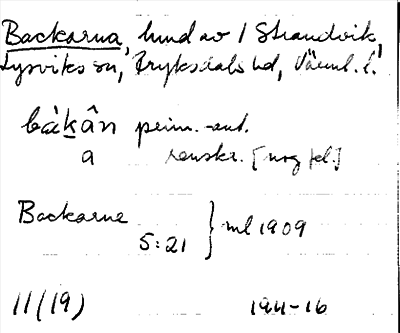 Backarna, hmd av 1 Strandvik,
Lysviks sn, Fryksdals hd, Värml. l.
bàkân prim.-ant.
a renskr. [nog fel]
Backarne
5:21 } ml 1909
11(19) 1911-16